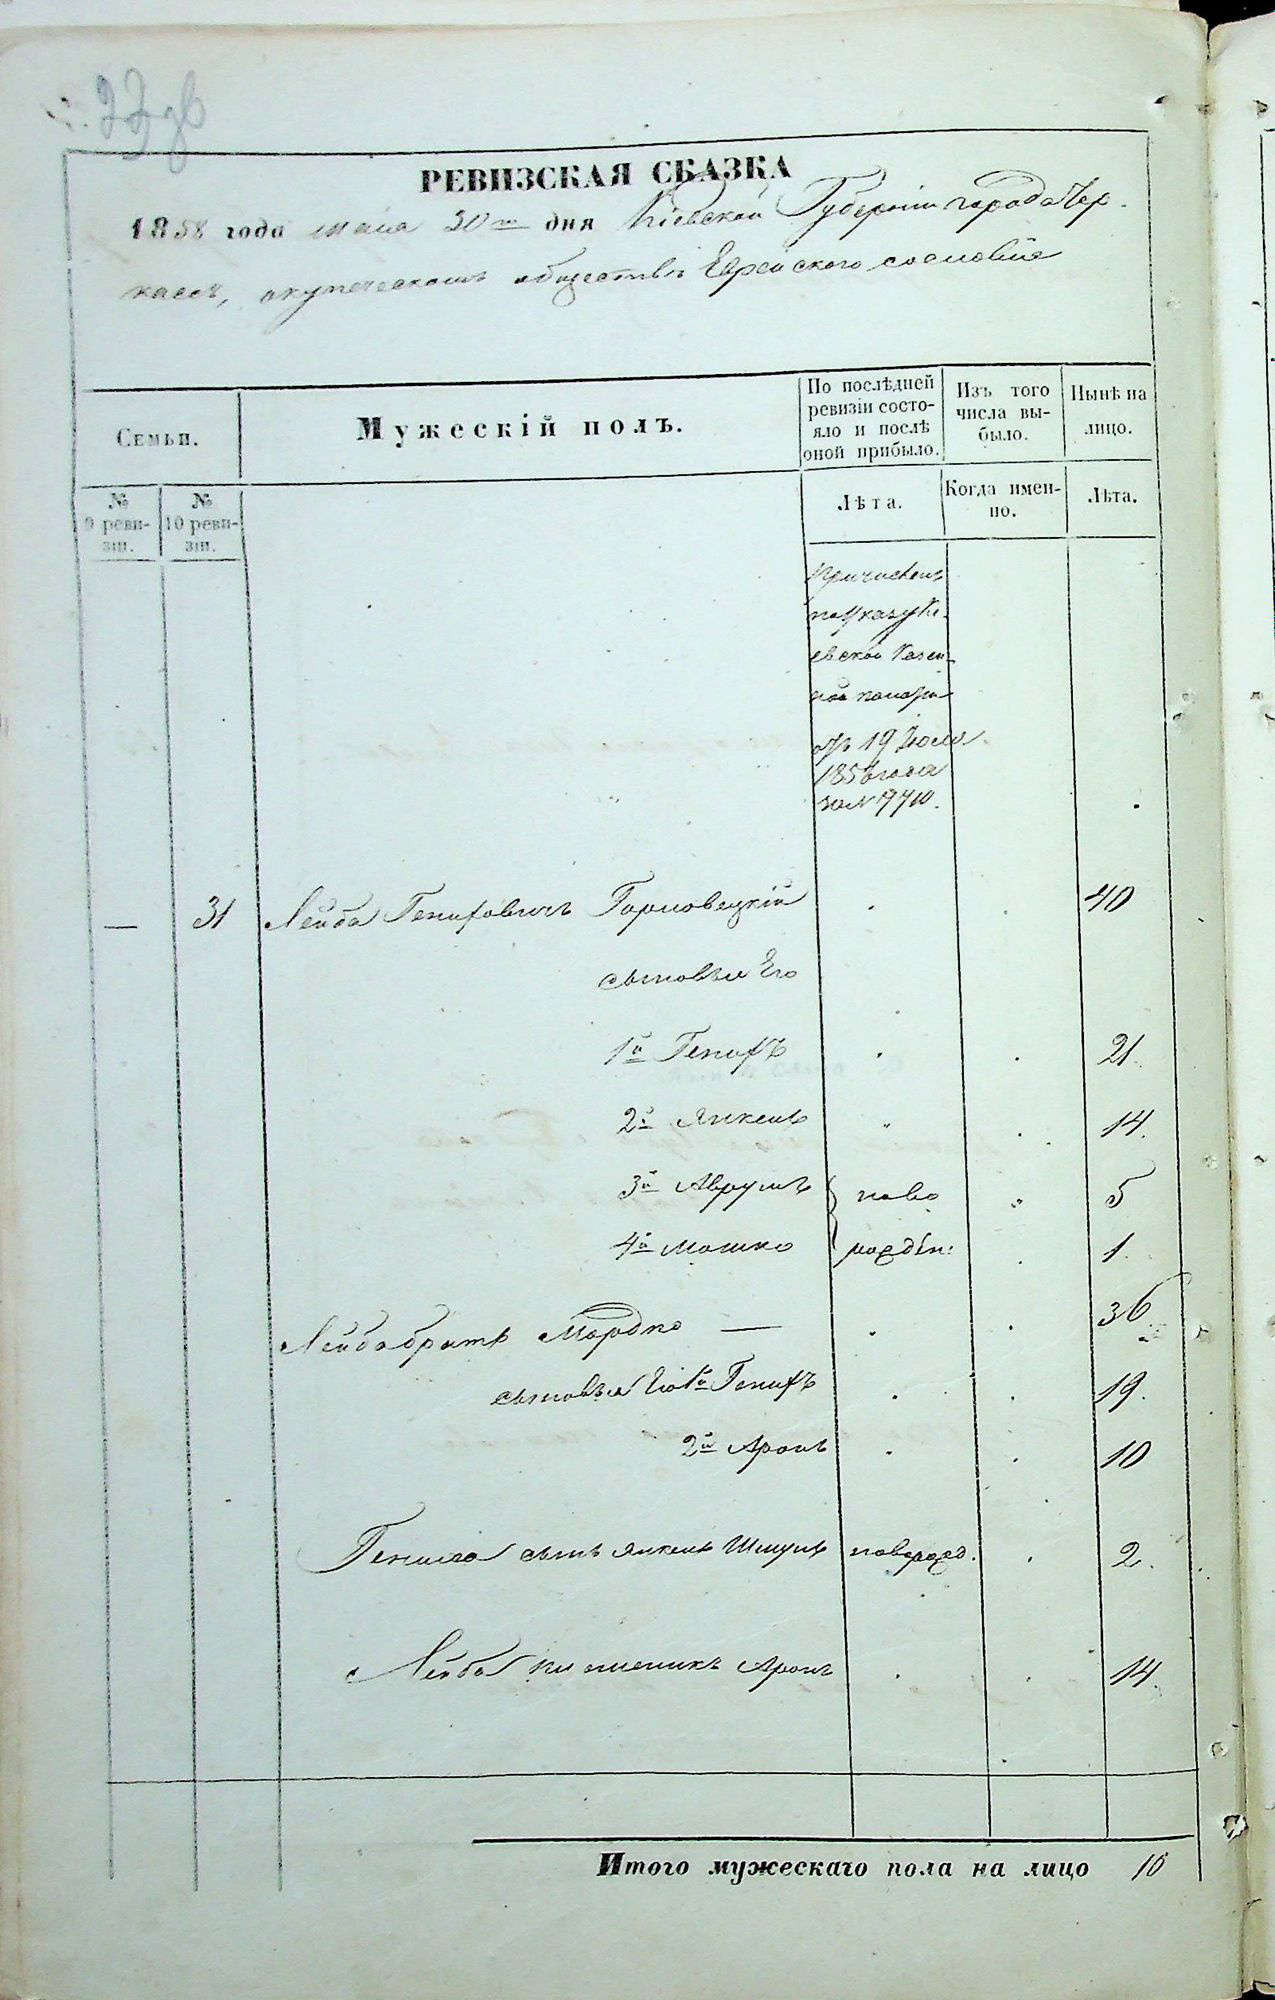 РЕВИЗСКАЯ СКАЗКА
1858 года мaiя 30го дня Кіевской Губерніи города Чер-
касъ, о купеческомъ обществѣ Еврейского сословіе
Семьи.
Мужескій полъ.
По послѣдней ревизіи состояло и послѣ оной прибыло.
Изъ того числа выбыло.
Нынѣ на лицо.
№ 9 ревизіи.
№ 10 ревизіи.
Лѣта.
Когда именно.
Лѣта.
Причислен
по указу Кі-
евской Казен-
ной палаты
отъ 19 Іюля
185 года
за №
— 31 Лейба Гениховичъ 40
сыновья Его
1й Генихъ 21.
2й Янкель 14.
3й Аврумъ ново 5
4й Мошко рожден: 1.
Лейба братъ Мордко — 36
сыновья Его 1й Генихъ 19.
2й Аронъ 10
Гениха сынъ Янкель Шмуль новорожд. 2.
Лейба племеникъ Аронъ 14.
Итого мужескаго пола на лицо 10